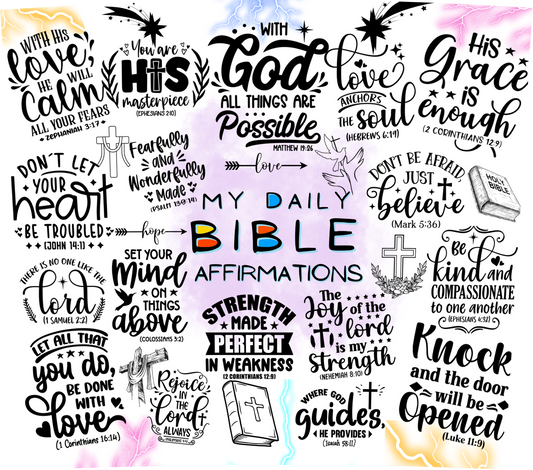 WITH HIS
love,
HE WILL
Calm
ALL YOUR FEARS
ZEPHANIAH 3:17
You are
HIS
masterpiece
(EPHESIANS 2:10)
WITH
God
ALL THINGS ARE
Possible
MATTHEW 19:26
love
ANCHORS
THE soul
(HEBREWS 6:19)
HiS
Grace
is
enough
(2 CORINTHIANS 12:9)
DON'T LET
YOUR
heart
BE TROUBLED
(JOHN 14:1)
Fearfully
and
Wonderfully
Made
(PSALM 139:14)
love
hope
MY DAILY
BIBLE
AFFIRMATIONS
DON'T BE AFRAID,
JUST
believe
(Mark 5:36)
HOLY
BIBLE
THERE IS NO ONE LIKE THE
Lord
(1 SAMUEL 2:2)
SET YOUR
Mind
ON
THINGS
above
(COLOSSIANS 3:2)
STRENGTH
MADE
PERFECT
IN WEAKNESS
(2 CORINTHIANS 12:9)
The
Joy of the
lord
is my
Strength
(NEHEMIAH 8:10)
BE
kind and
COMPASSIONATE
to one another
(EPHESIANS 4:32)
LET ALL THAT
you do,
BE DONE
WITH
love
(1 Corinthians 16:14)
Rejoice
IN THE
Lord
ALWAYS
where GOD
guides,
HE PROVIDES
(Isaiah 58:11)
Knock
and the door
will be
Opened
(Luke 11:9)